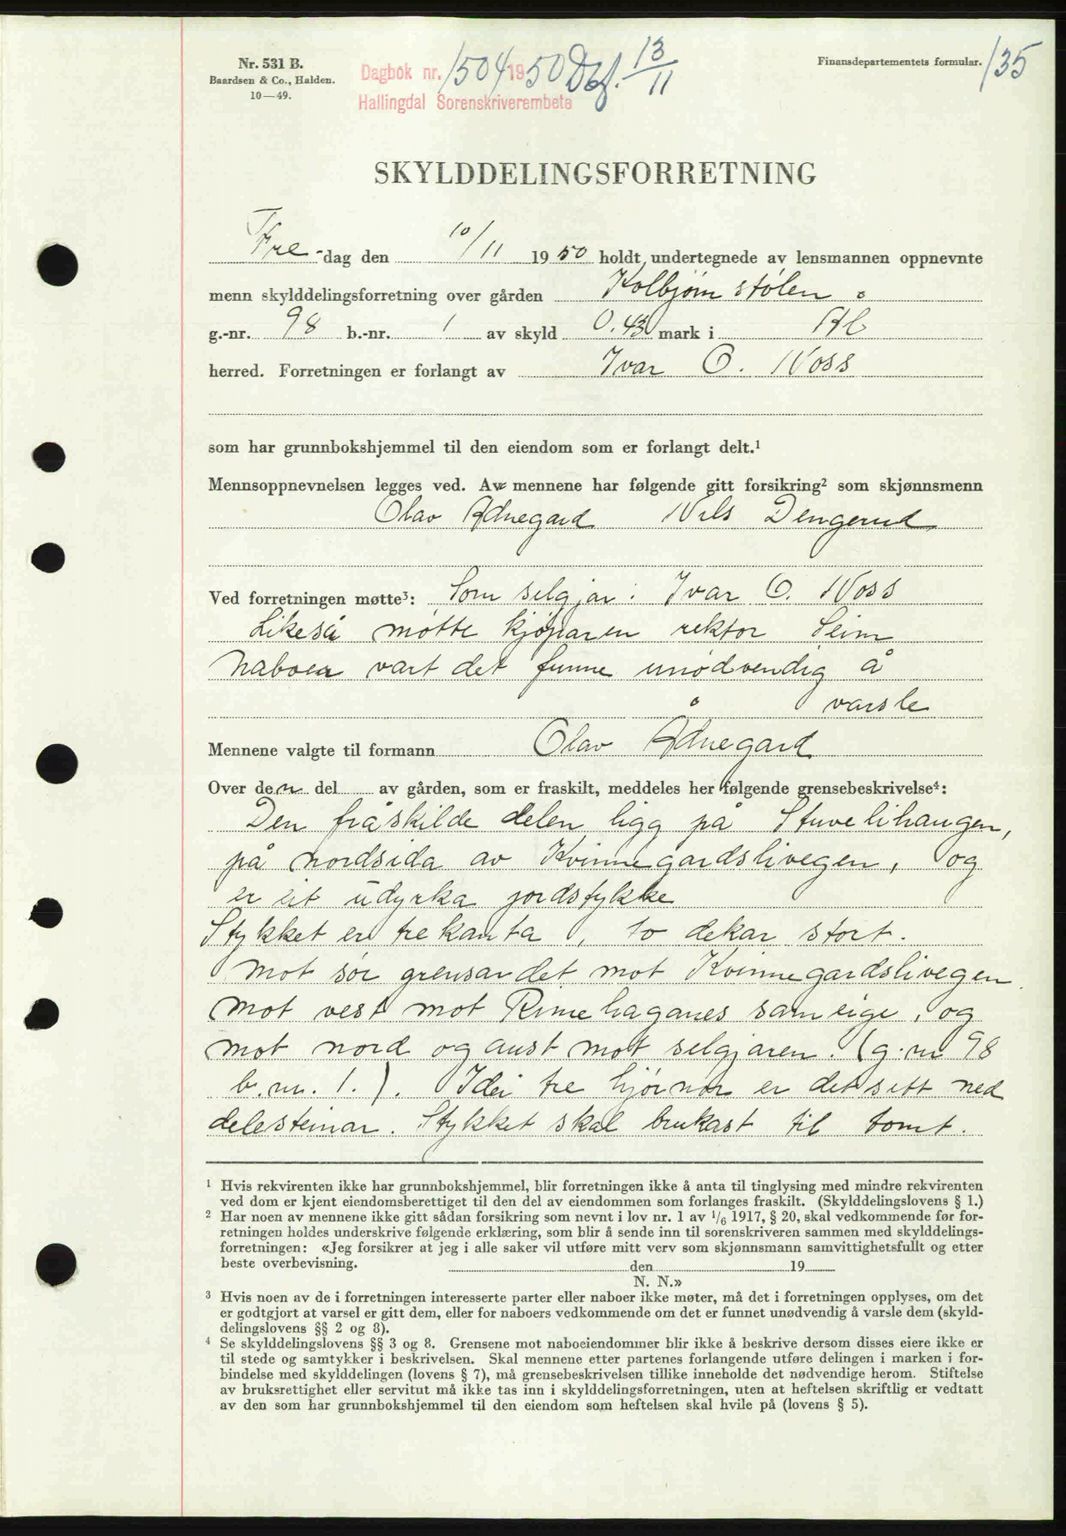 Nr. 531 B.
Baardsen & Co., Halden.
10—49.
Dagbok nr. 1504 1950 Def. 13/11
Hallingdal Sorenskriverembete
Finansdepartementets formular.
135
SKYLDDELINGSFORRETNING
Fre-dag den 10/11 1950 holdt undertegnede av lensmannen oppnevnte
menn skylddelingsforretning over gården Kolbjørnstølen
g.-nr. 98 b.-nr. 1 av skyld 0.43 mark i Ål
herred. Forretningen er forlangt av Ivar O. Noss
som har grunnbokshjemmel til den eiendom som er forlangt delt.¹
Mennsoppnevnelsen legges ved. Av mennene har følgende gitt forsikring² som skjønnsmenn
Olav Ådnegard Nils Dengerud
Ved forretningen møtte³: Som seljar: Ivar O. Noss
Likeså møtte kjøparen rektor Seim
Naboar vart det funne unødvendig å
varsle
Mennene valgte til formann Olav Ådnegard
Over den del av gården, som er fraskilt, meddeles her følgende grensebeskrivelse⁴:
Den fråskilde delen ligg på Stuvelihaugen,
på nordsida av Kvinnegardslivegen, og
er eit udyrka jordstykke
Stykket er trekanta, to dekar stort.
Mot sør grensar det mot Kvinnegardslivegen
mot vest mot Rimehaganes sameige, og
mot nord og aust mot selgjaren. (g.nr 98
b.nr. 1.). I dei tre hjørnor er det sett ned
delesteinar. Stykket skal brukast til tomt.
¹ Hvis rekvirenten ikke har grunnbokshjemmel, blir forretningen ikke å anta til tinglysing med mindre rekvirenten
ved dom er kjent eiendomsberettiget til den del av eiendommen som forlanges fraskilt. (Skylddelingslovens § 1.)
² Har noen av mennene ikke gitt sådan forsikring som nevnt i lov nr. 1 av 1/6 1917, § 20, skal vedkommende før for-
retningen holdes underskrive følgende erklæring, som blir å sende inn til sorenskriveren sammen med skylddelings-
forretningen: «Jeg forsikrer at jeg i alle saker vil utføre mitt verv som skjønnsmann samvittighetsfullt og etter
beste overbevisning. den 19
N. N.»
³ Hvis noen av de i forretningen interesserte parter eller naboer ikke møter, må det i forretningen opplyses, om det
er godtgjort at varsel er gitt dem, eller for naboers vedkommende om det er funnet unødvendig å varsle dem (skyld-
delingslovens §§ 2 og 8).
⁴ Se skylddelingslovens §§ 3 og 8. Grensene mot naboeiendommer blir ikke å beskrive dersom disses eiere ikke er
til stede og samtykker i beskrivelsen. Skal mennene etter partenes forlangende utføre delingen i marken i for-
bindelse med skylddelingen (lovens § 7), må grensebeskrivelsen tillike inneholde det nødvendige herom. Stiftelse
av bruksrettighet eller servitut må ikke tas inn i skylddelingsforretningen, uten at heftelsen skriftlig er vedtatt
av den som har grunnbokshjemmel til den eiendom som heftelsen skal hvile på (lovens § 5).